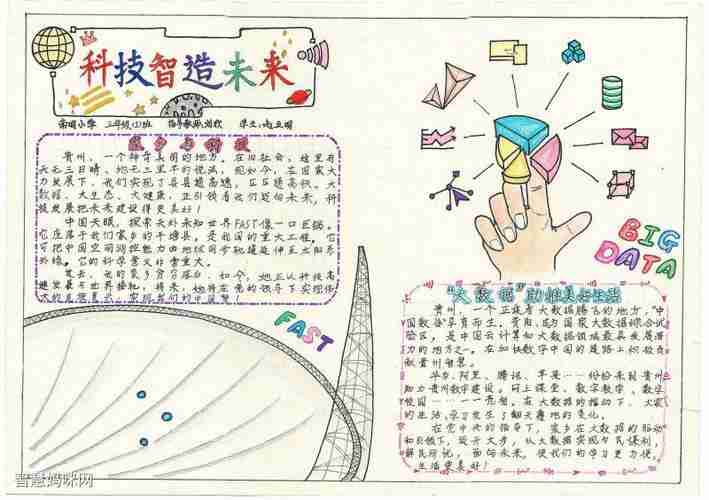 科技智造未来
三年级(2)班
家乡与科技
贵州，一个神奇美丽的地方。在旧社会，这里有
天无三日晴、地无三里平的说法，现如今，在国家大
力发展下，我们实现了县县通高速，
数据、大生态、大健康，正引领着我们迈向未来，科
技发展把未来建设得更美好！
中国天眼，探索天外未知世界FAST像一口巨锅。
它座落于我们家乡的平塘县，是我国的重大工程。它
可把中国空间测控能力由地球同步轨道延伸至太阳系
外缘。它的科学意义非常重大。
过去，我的家乡贫穷落后，如今，她正以科技高
速发展与世界接轨，将来，她将在党的领导下实现伟
FAST
BIG
DATA
“大数据”助推美好生活
贵州，一个正在有大数据腾飞的地方，“中
国数谷”孕育而生。贵阳，成为国家大数据综合试
验区，是中国云计算和大数据领域最具发展潜
力的地方之一。在加快数字中国的道路上积极贡
献贵州智慧。
华为、阿里、腾讯、苹果……纷纷来到贵州
助力贵州数字建设。网上课堂、数字教学、数字
校园……一一亮相。在大数据的推动下，大家
的生活、学习发生了翻天覆地的变化。
在党中央的领导下，家乡在大数据的推动
和引领下，迈开大步，从大数据实现为民谋利，
解民所忧，面向未来，使我们的学习更方便，
生活更美好！
智慧妈咪网